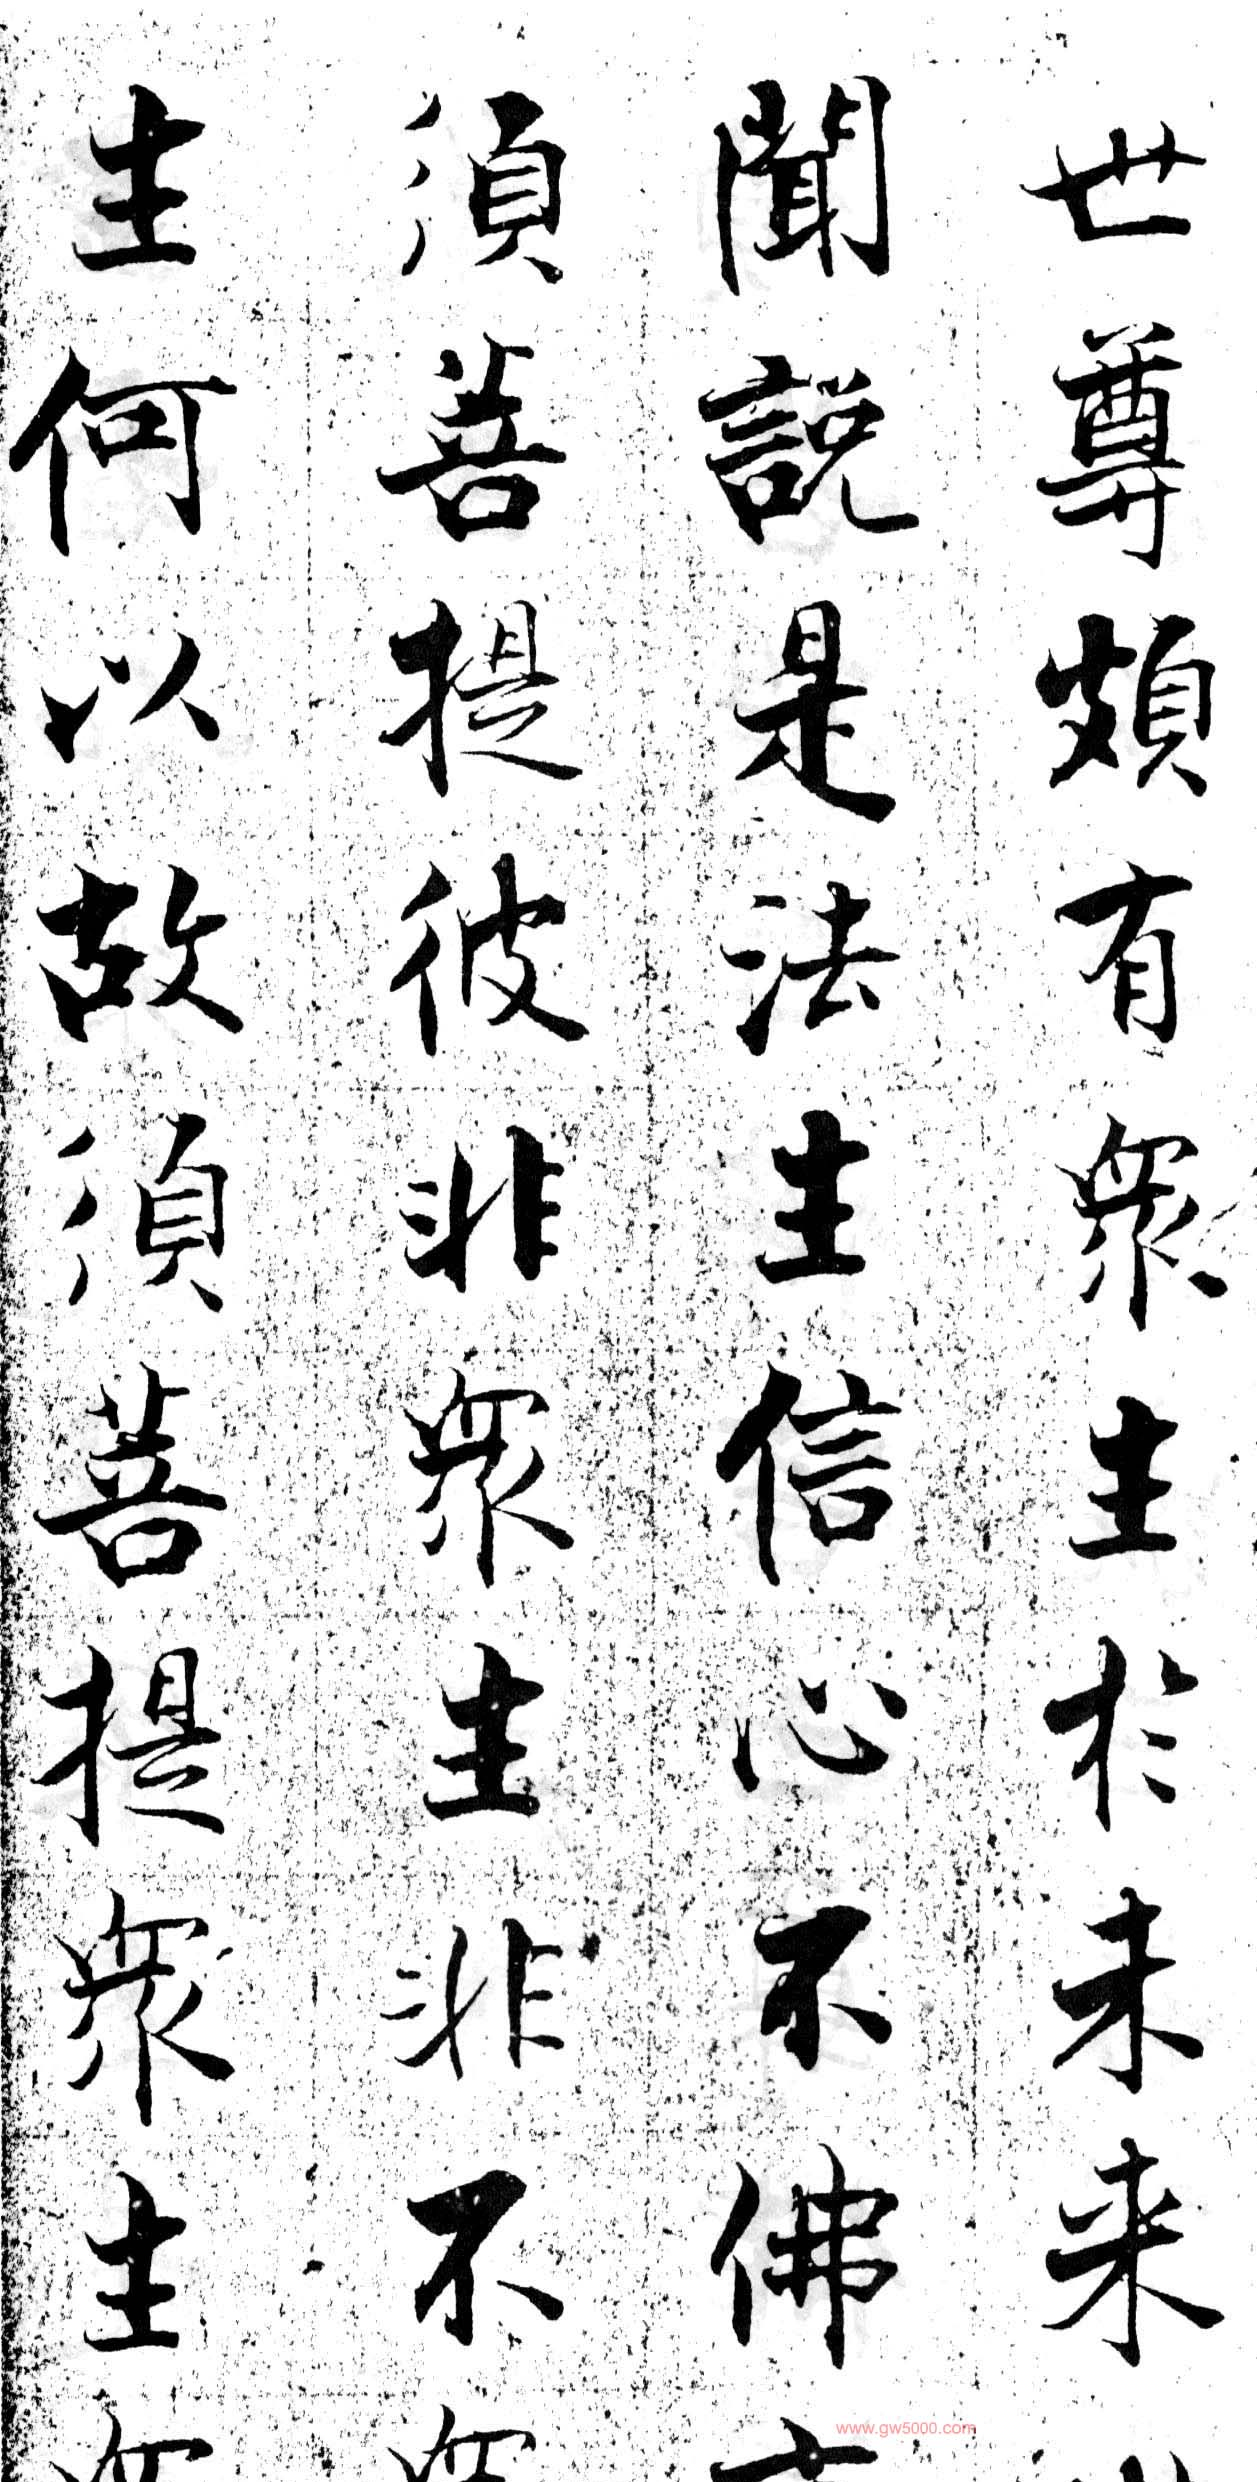 世尊頗有衆生於未来
聞說是法生信心不佛
須菩提彼非衆生非不
生何以故須菩提衆生
www.gw5000.com